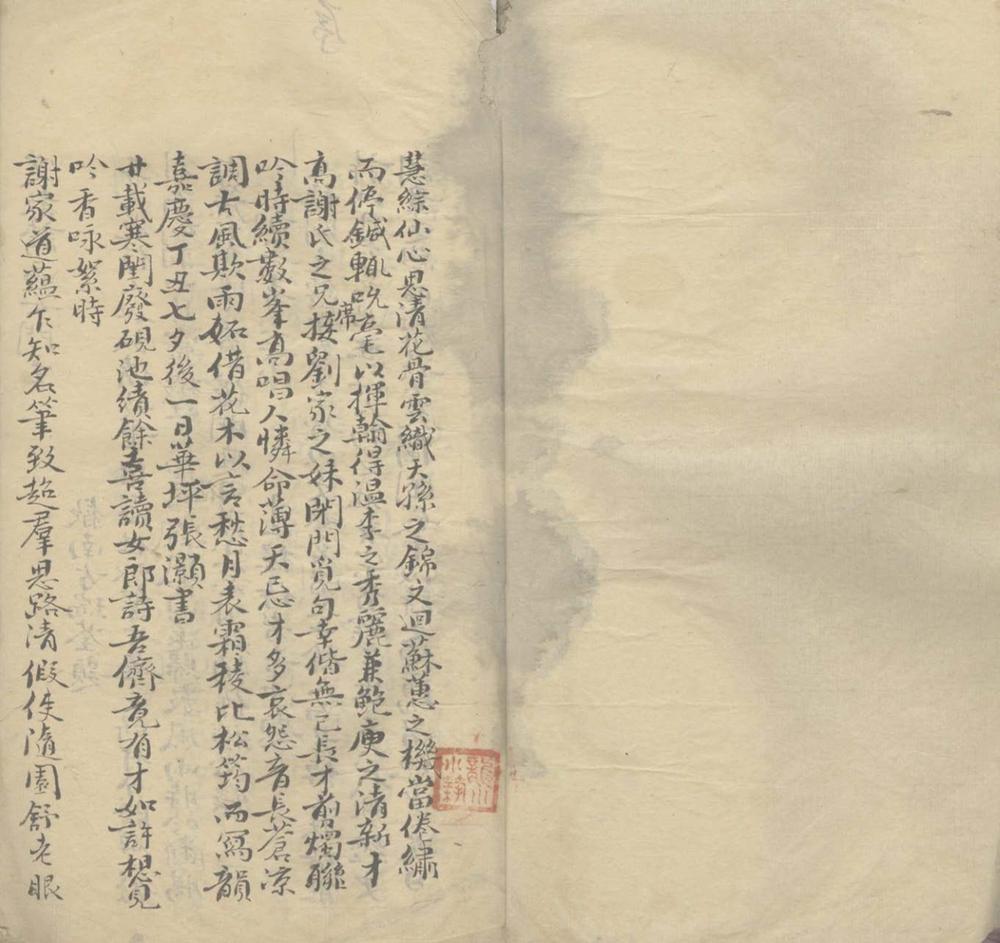 慧綜仙心思清花骨雲織天孫之錦文迴蘇蕙之機當倦繡
而停鍼輒吮毫以揮翰得溫李之秀麗兼鮑庾之清新才
席
高謝氏之兄接劉家之妹閉門覓句幸偕無已長才剪燭聯
吟時續數峯高唱人憐命薄天忌才多哀怨音長蒼凉
調古風欺雨妬借花木以言愁月表霜稜比松筠而寫韻
嘉慶丁丑七夕後一日華坪張灝書
廿載寒閨廢硯池績餘喜讀女郎詩吾儕竟有才如許想見
吟香咏絮時
謝家道蘊乍知名筆致超羣思路清假使隨園舒老眼